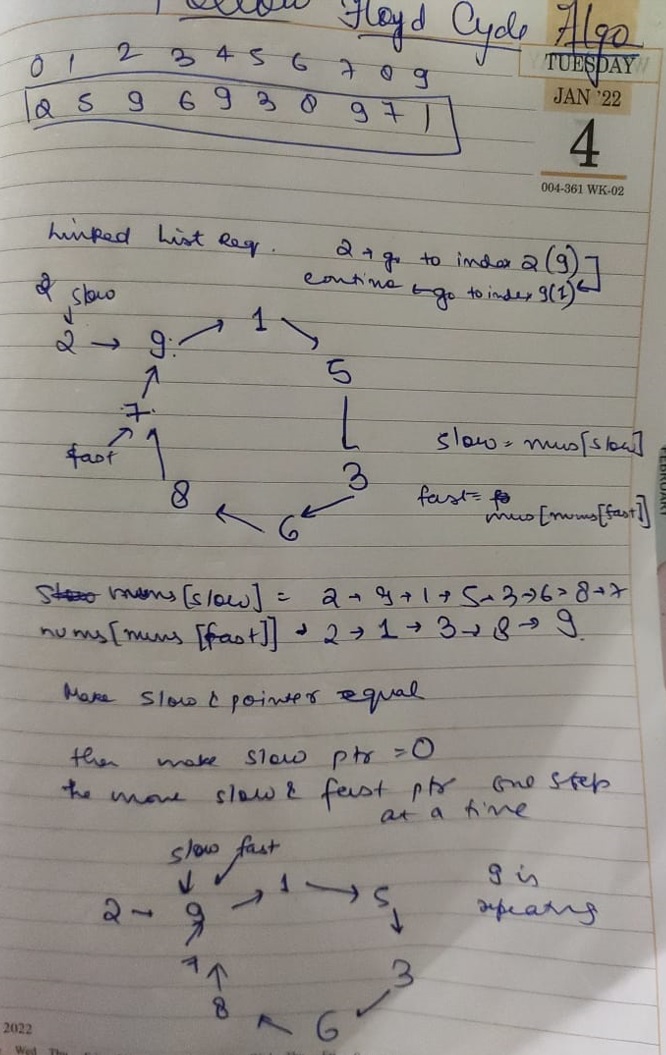 Floyd Cycle Algo
TUESDAY
JAN '22
4
004-361 WK-02
0 1 2 3 4 5 6 7 8 9
2 5 9 6 9 3 8 9 7 1
Linked List Req.
2 → go to index 2 (9)
continue ← go to index 9(1)
2 slow
2 → 9 → 1
5
7
fast
8
3
6
slow = nums[slow]
fast =
nums[nums[fast]]
nums[slow] = 2 → 9 → 1 → 5 → 3 → 6 → 8 → 7
nums[nums[fast]] → 2 → 1 → 3 → 8 → 9
Make slow & pointer equal
then make slow ptr = 0
the move slow & fast ptr one step
at a time
slow fast
2 → 9 → 1 → 5
9 is
repeating
7
3
8
6
2022
Wed
FEBRUARY